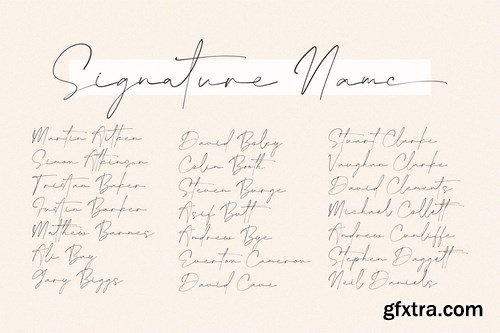 Signature Name
Martin Aitken
Simon Atkinson
Tristan Baker
Justin Banker
Matthew Barnes
Ali Bay
Gary Biggs
David Boley
Colin Booth
Steven Bunge
Asif Butt
Andrew Bye
Everton Cameron
David Cave
Stuart Clarke
Vaughan Clarke
David Clements
Michael Collett
Andrew Cunliffe
Stephen Daggett
Neil Daniels
gfxtra.com